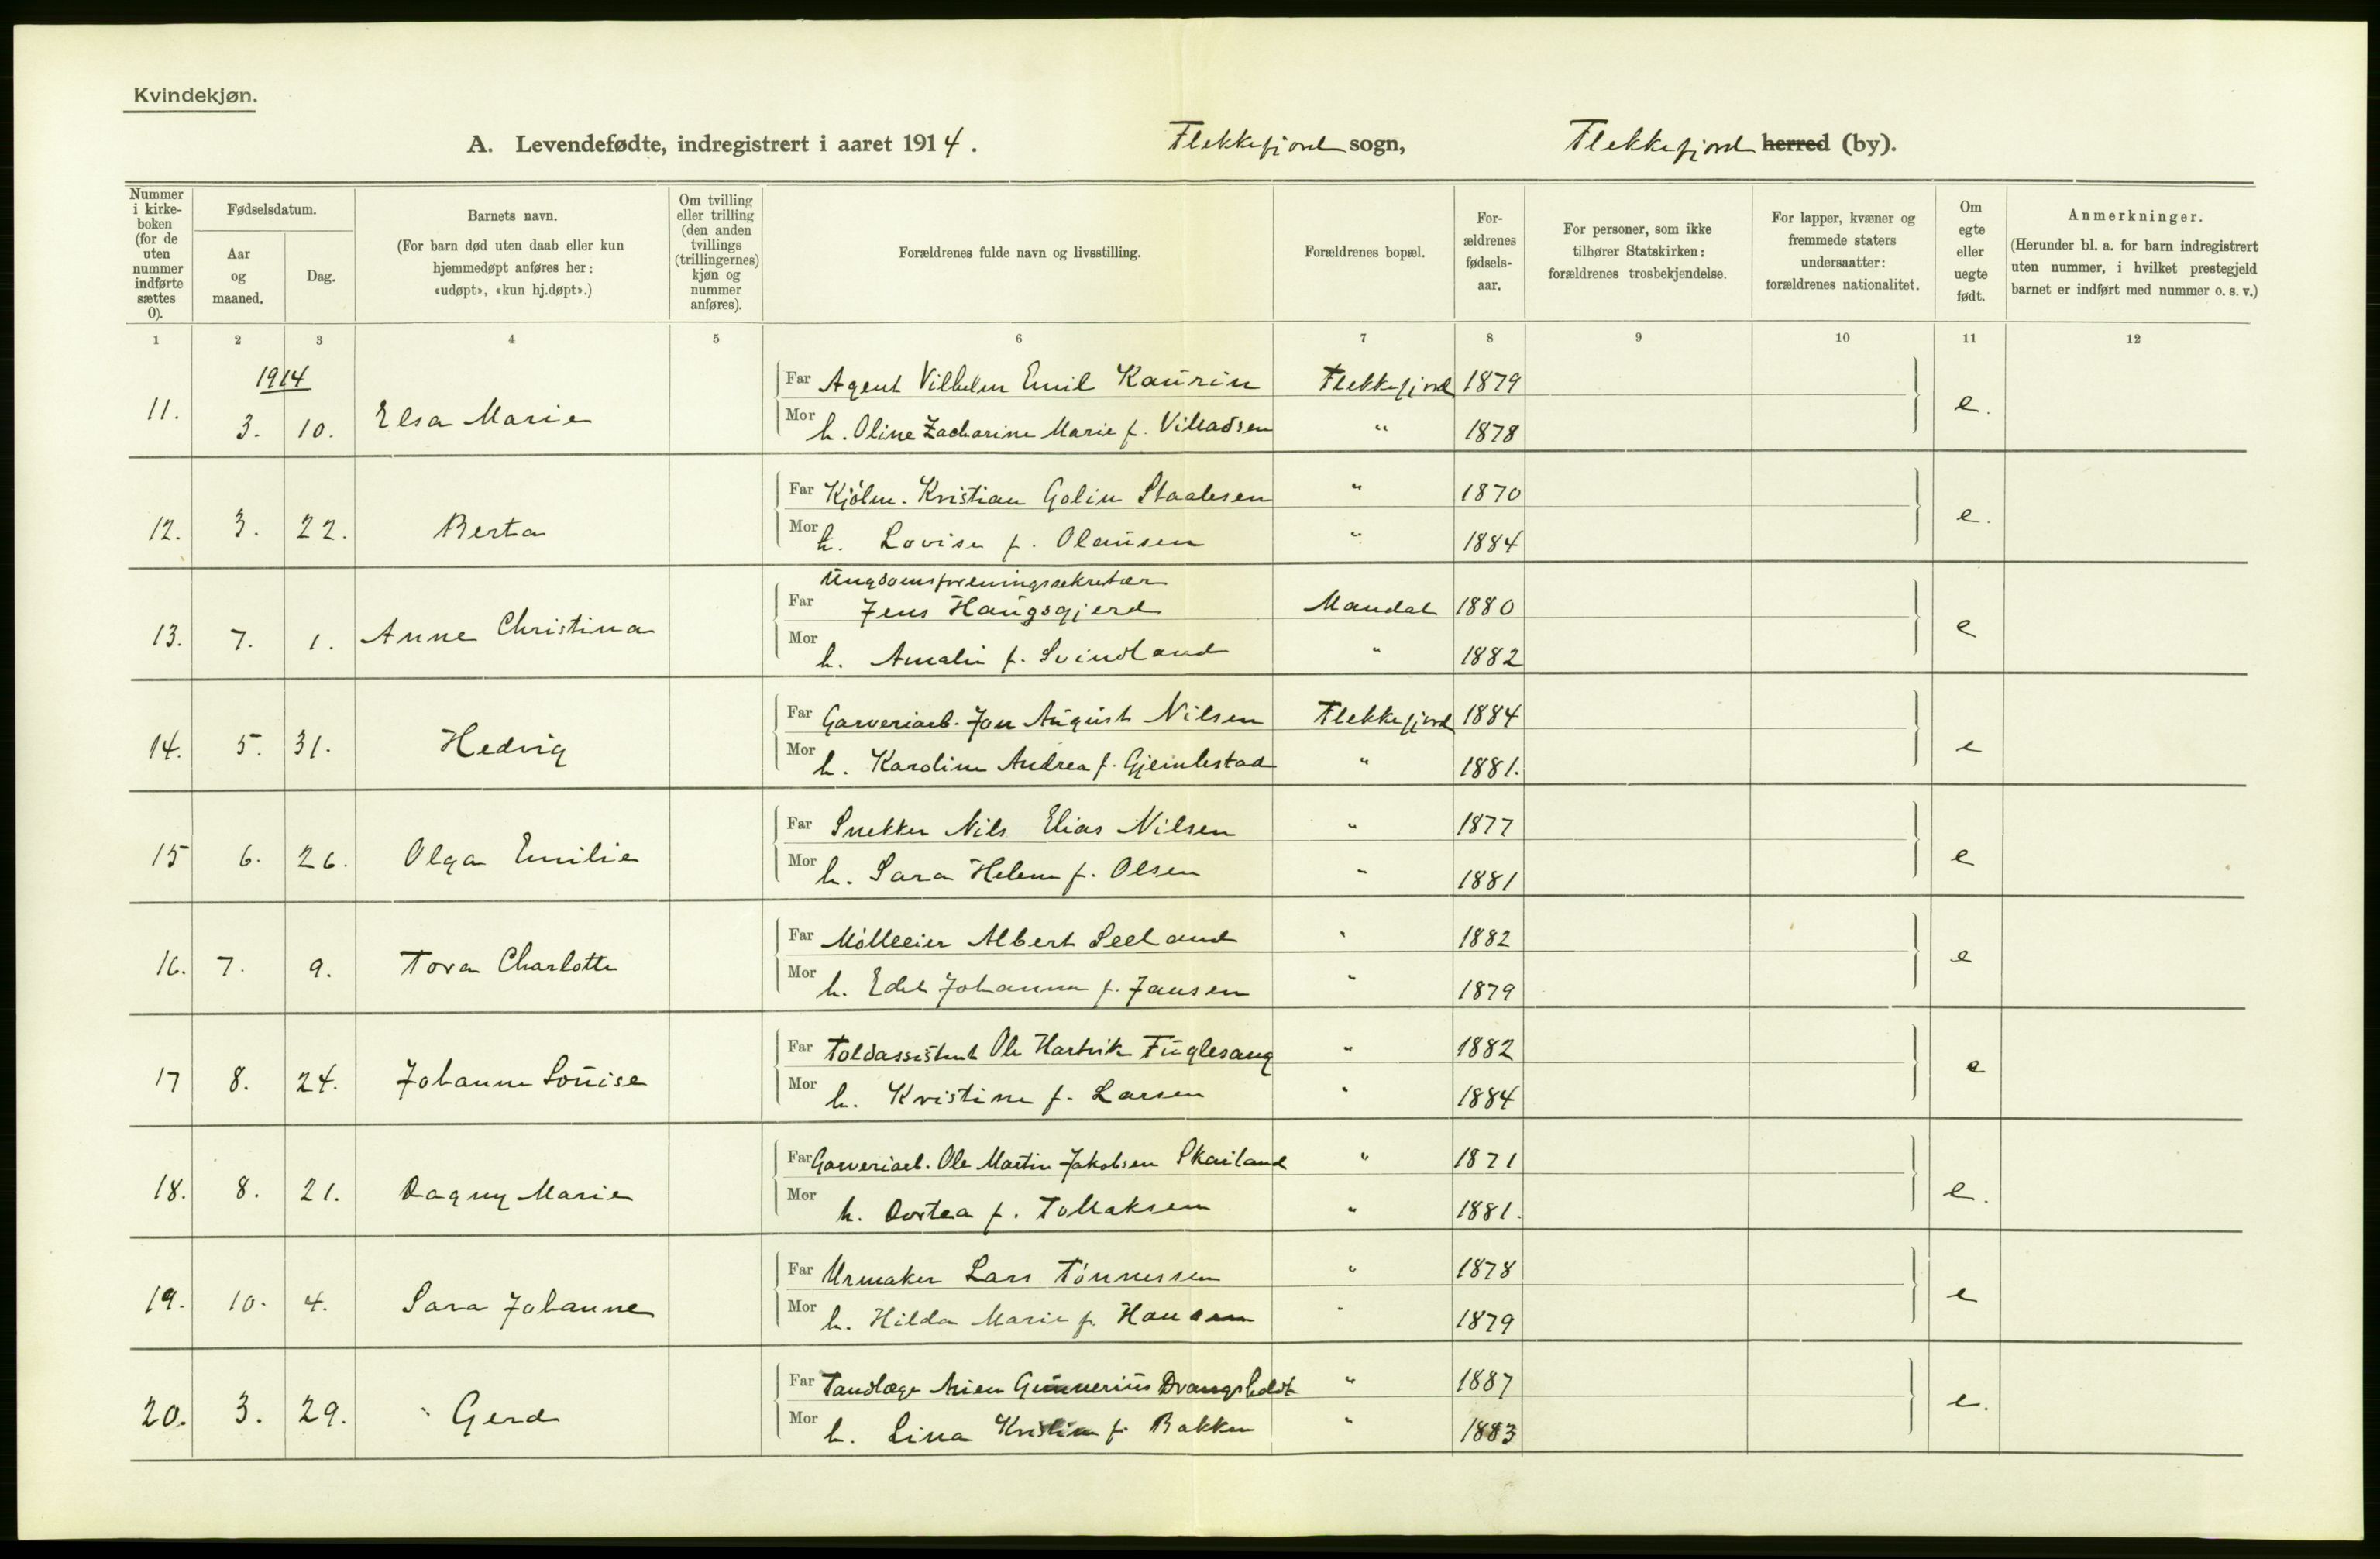 Kvindekjøn.
A. Levendefødte, indregistrert i aaret 1914. Flekkefjord sogn, Flekkefjord herred (by).
Nummer i kirke-boken (for de uten nummer indførte sættes 0).
Fødselsdatum.
Aar og maaned.
Dag.
Barnets navn.
(For barn død uten daab eller kun hjemmedøpt anføres her: «udøpt», «kun hj.døpt».)
Om tvilling eller trilling (den anden tvillings (trillingernes) kjøn og nummer anføres).
Forældrenes fulde navn og livsstilling.
Forældrenes bopæl.
For-ældrenes fødsels-aar.
For personer, som ikke tilhører Statskirken: forældrenes trosbekjendelse.
For lapper, kvæner og fremmede staters undersaatter: forældrenes nationalitet.
Om egte eller uegte født.
Anmerkninger.
(Herunder bl. a. for barn indregistrert uten nummer, i hvilket prestegjeld barnet er indført med nummer o. s. v.)
1 2 3 4 5 6 7 8 9 10 11 12
1914
Far Agent Vilhelm Emil Kaurin Flekkefjord 1879
11. 3. 10. Elsa Marie e.
Mor h. Oline Zacharine Marie f. Villadsen " 1878
Far Kjølm. Kristian Golin Staalesen " 1870
12. 3. 22. Berta e.
Mor h. Lovise f. Olausen " 1884
Ungdomsforeningssekretær
Far Jens Haugsgjerd Mandal 1880
13. 7. 1. Anne Christina e
Mor h. Amalie f. Svindland " 1882
Far Garveriarb. Jon August Nilsen Flekkefjord 1884
14. 5. 31. Hedvig e
Mor h. Karoline Andrea f. Gjemlestad " 1881.
Far Snekker Nils Elias Nilsen " 1877
15 6. 26. Olga Emilie e
Mor h. Sara Helene f. Olsen " 1881
Far Mølleeier Albert Seeland " 1882
16. 7. 9. Tora Charlotte e
Mor h. Edel Johanne f. Jansen " 1879
Far Toldassistent Ole Hartvik Fuglesang " 1882
17 8. 24. Johanne Louise e
Mor h. Kristine f. Larsen " 1884
Far Garveriarb. Ole Martin Jakobsen Skailand " 1871
18. 8. 21. Dagny Marie e.
Mor h. Dortea f. Tollaksen " 1881.
Far Urmaker Lars Tønnessen " 1878
19. 10. 4. Sara Johanne e
Mor h. Hilda Marie f. Hansen " 1879
Far Tandlæge Arien Gunnerius Drangsholdt " 1887
20. 3. 29. Gerd e.
Mor h. Lina Kristine f. Bakken " 1883